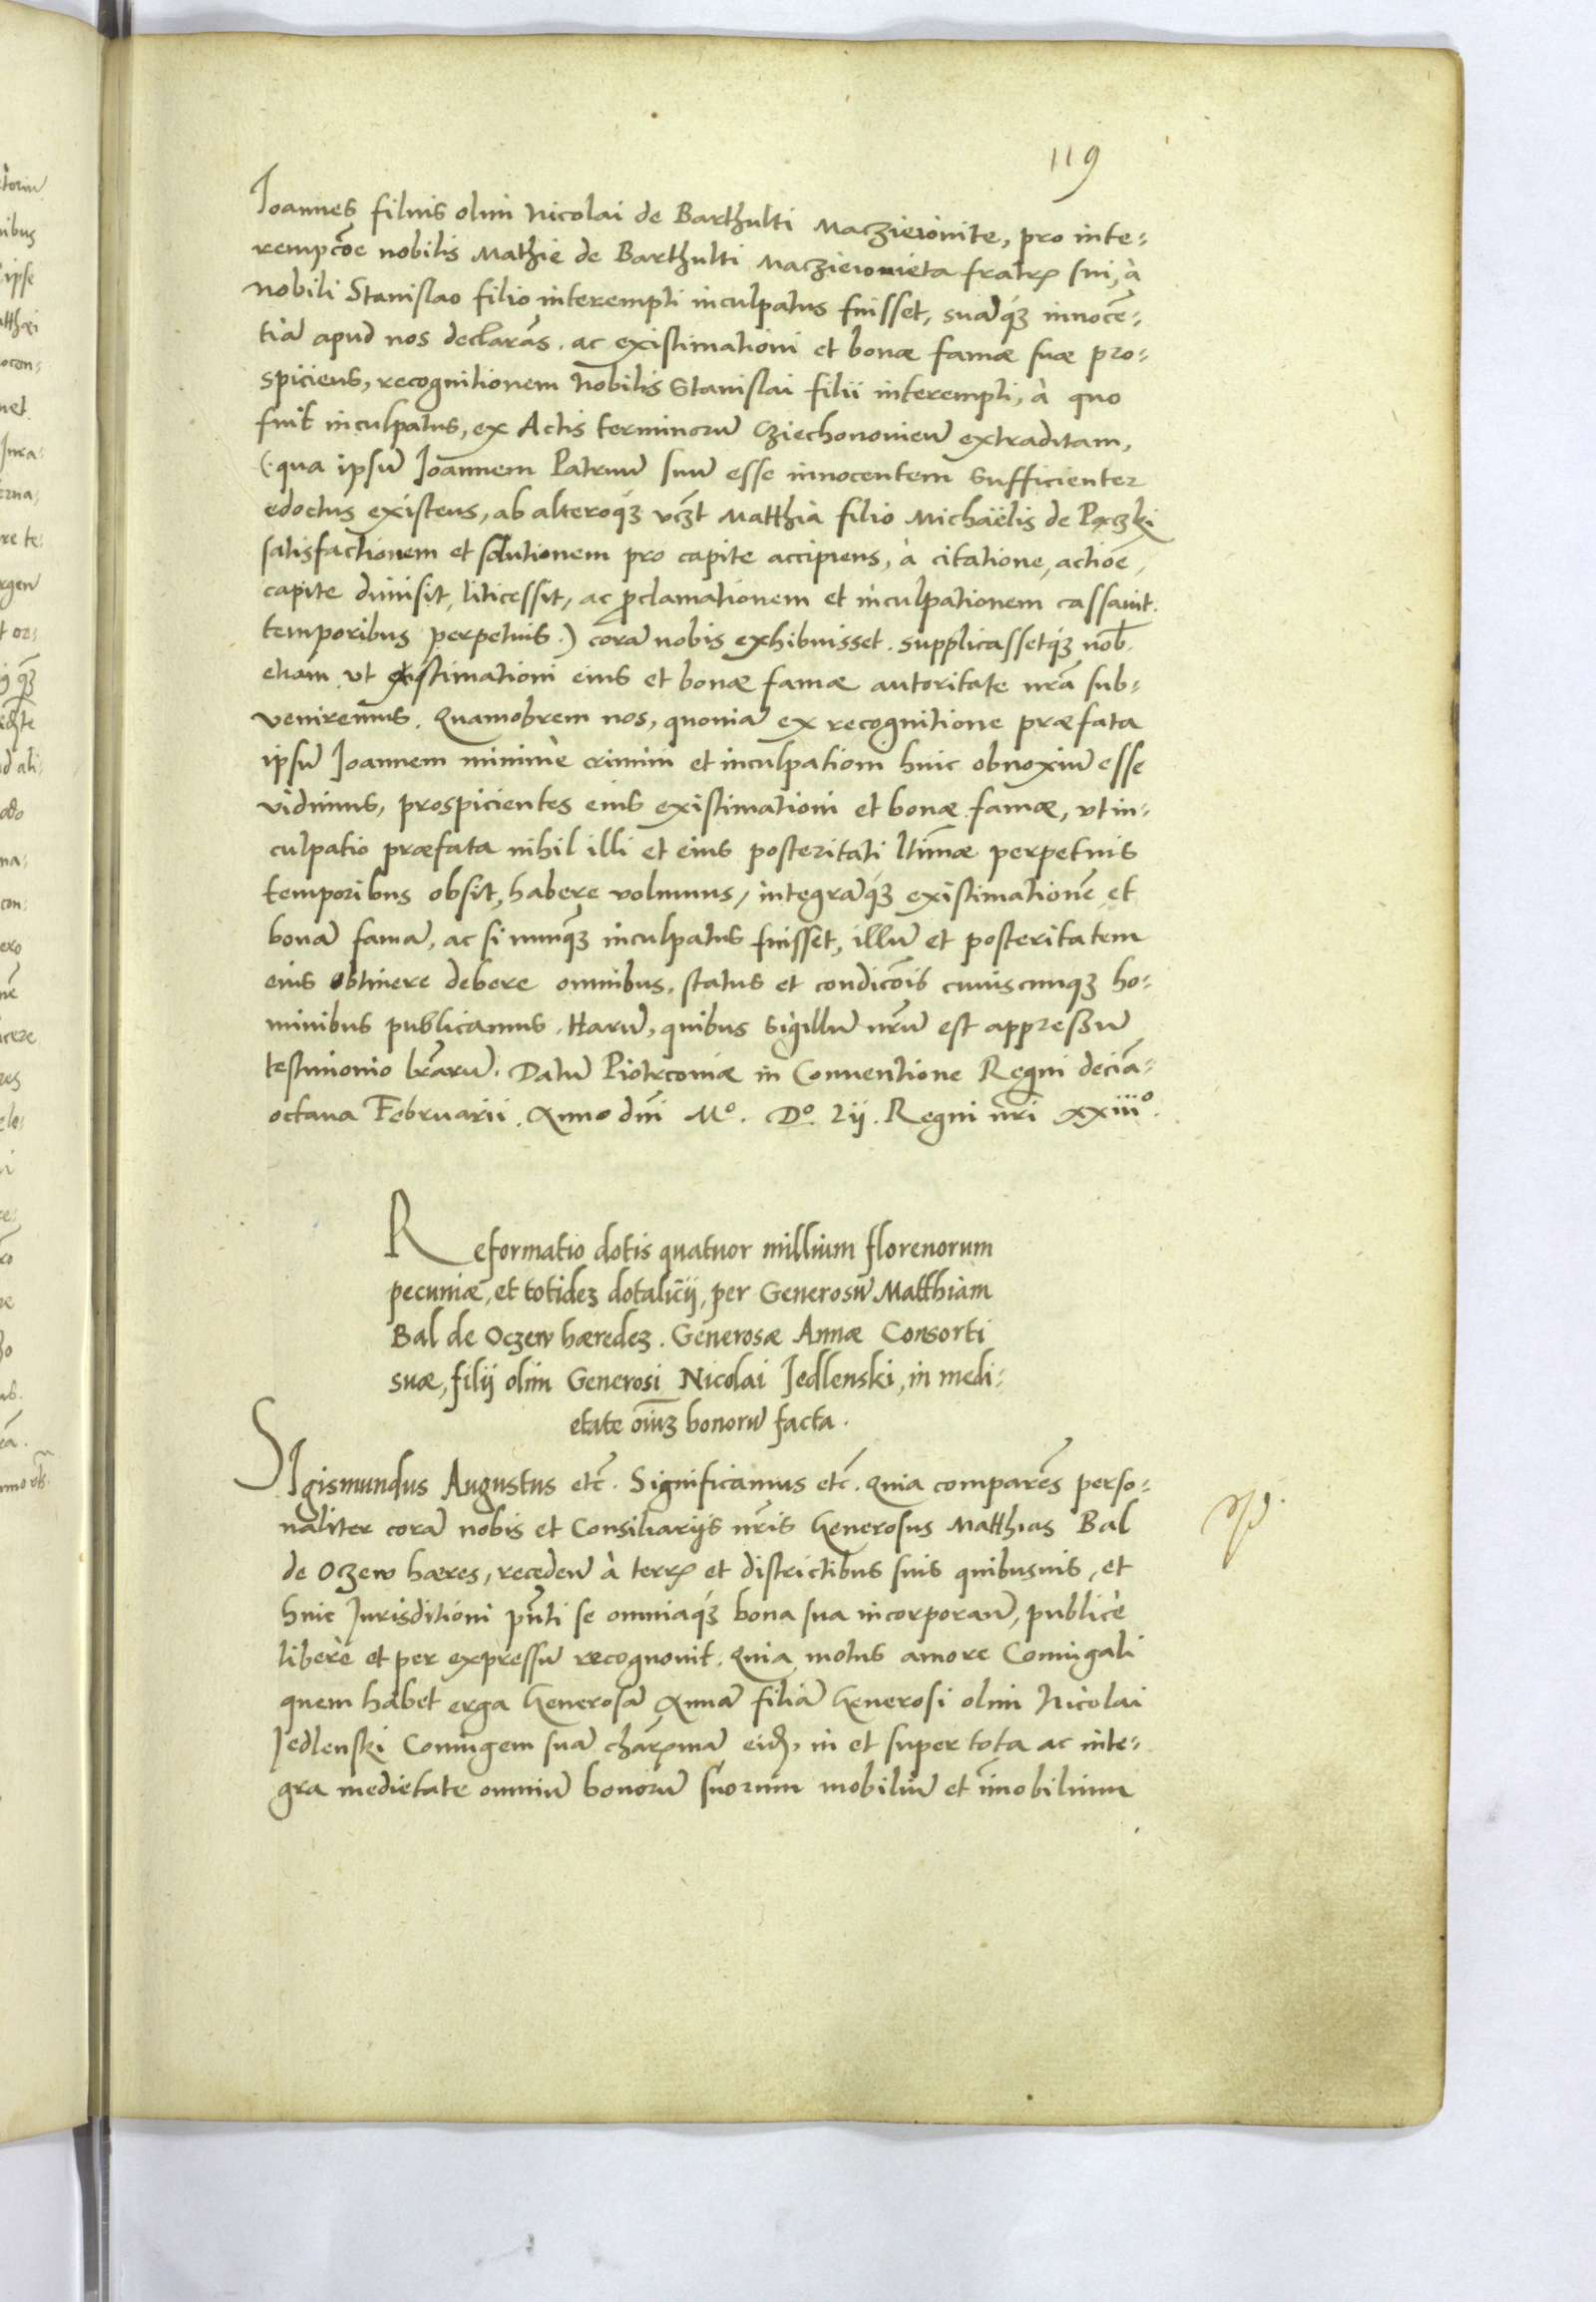 119
Ioannes filius olim Nicolai de Barthulti Maczieiovite, pro inte-
rempcõe nobilis Mathie de Barthulti Maczieiovieta fratrꝭ sui, à
nobili Stanislao filio interempti inculpatus fuisset, suãqꝫ innocẽ-
tiã apud nos declarãs. ac existimationi et bonæ famæ suæ pro-
spiciens, recognitionem Nobilis Stanislai filii interempti, à quo
fuit inculpatus, ex Actis terminorũ Cziechonovieñ extraditam,
(qua ipsũ Ioannem Patruũ suũ esse innocentem sufficienter
edoctus existens, ab alteroqꝫ vczt Matthia filio Michaëlis de Pączki
satisfactionem et solutionem pro capite accipiens, à citatione, actiõe,
capite dimisit, liticessit, ac ꝓclamationem et inculpationem cassavit
temporibus perpetuis.) corã nobis exhibuisset. supplicassetqꝫ nob.
etiam vt existimationi eius et bonæ famæ autoritate nrã sub-
veniremus. Quamobrem nos, quoniã ex recognitione præfata
ipsũ Ioannem minime crimini et inculpationi huic obnoxiũ esse
vidimus, prospicientes eius existimationi et bonæ famæ, vt in-
culpatio præfata nihil illi et eius posteritati ltimæ perpetuis
temporibus obsit, habere volumus, integrãqꝫ existimationẽ et
bonã famã, ac si nunqꝫ inculpatus fuisset, illũ et posteritatem
eius obtinere debere omnibus, status et condicõis cuiuscunqꝫ ho-
minibus publicamus. Harũ, quibus sigillũ nrũ est appressũ
testimonio lrarũ. Datũ Piotrcoviæ in Conventione Regni deciã-
octava Februarii. Anno dñi Mº. Dº. lij. Regni nri xxiiiº.
Reformatio dotis quatuor millium florenorum
pecuniæ, et totidez dotalicij, per Generosũ Matthiam
Bal de Oczew hæredez. Generosæ Annæ Consorti
suæ, filij olim Generosi Nicolai Jedlenski, in medi-
etate oĩuz bonorũ facta.
SIgismundus Augustus etc̃. Significamus etc̃. Quia comparẽs perso-
naliter corã nobis et Consiliarijs nr̃is Generosus Matthias Bal
de Oczew hæres, recedeñ à terrꝭ et districtibus suis quibusuis, et
huic Iurisditioni pñti se omniaqꝫ bona sua incorporañ, publicè
liberè et per expressũ recognouit. Quia motus amore Coniugali
quem habet erga Generosã Annã filiã Generosi olim Nicolai
Jedlenski Coniugem suã charꝭmã eid, in et super tota ac inte-
gra medietate omniũ bonorũ suorum mobiliũ et im̃obilium